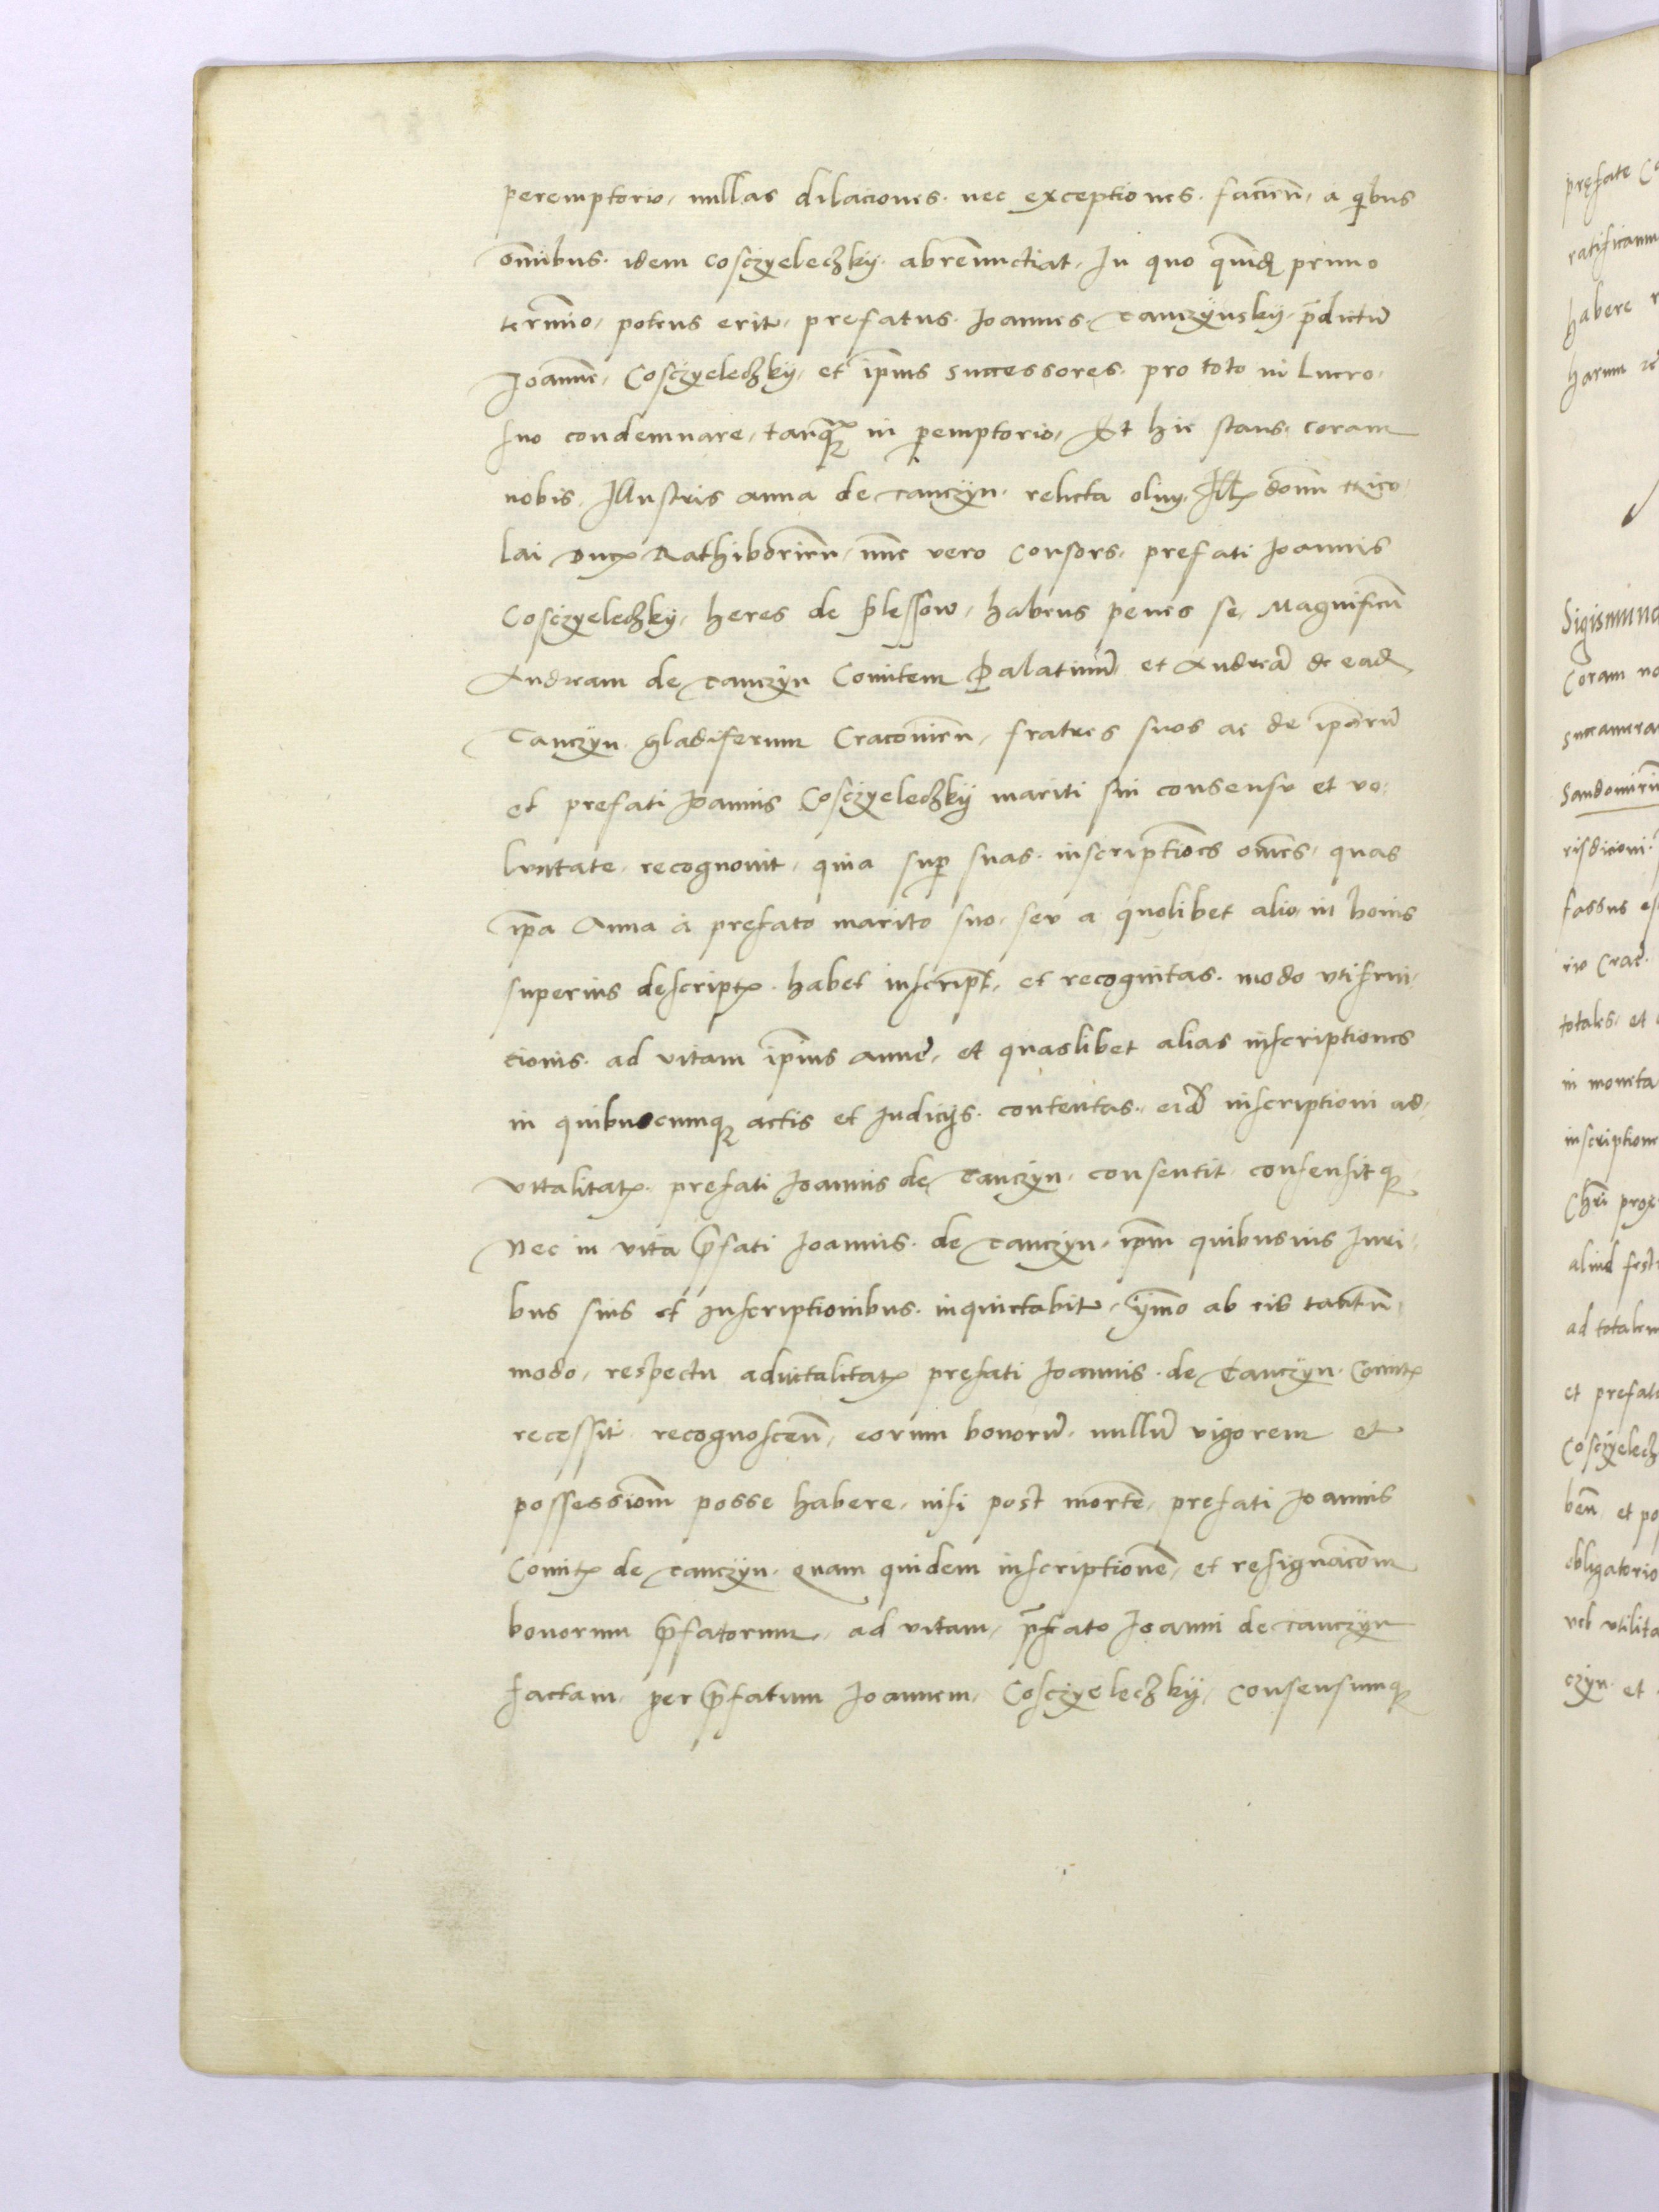 peremptorio, nullas dilaciones. nec exceptiones. facien̄, a qi̅bus
om̄nibus. idem Cosczyeleczkij. abren̄unctiat. In quo quid̄ē primo
termi̅o, potens erit, prefatus. Joannes. Tanczÿnskij. p̄dictū
Joannē, Cosczyeleczkij, et ip̄ius successores. pro toto in Lucro.
suo condemnare, tanq̄ꝫ in ꝑemptorio, Et hic stans. coram
nobis, Illustris anna de Tanczÿn. relicta olim, Illꝭ domi̅ Nico,
lai Ducꝭ Rathiborien̄, nu̅c vero Consors. prefati Joannis
Cosczyeleczkij, heres de Plessow, habens penes se, Magnificū
Andream de Tanczÿn Comitem Palatinū, et Andreā de ead̄
Tanczÿn. gladiferum Cracovien̄, fratres suos ac de ip̄orū
et prefati Joannis Cosczyeleczkij mariti sui consensu et vo,
luntate. recognovit, quia suꝑ suas. inscripti̅ones om̄es, quas
ip̄a Anna à prefato marito suo. seu a quolibet alio, in bonis
superius descriptꝭ. habet inscript̄, et recognitas. modo utifrui,
cionis. ad vitam ip̄ius anne, et quaslibet alias inscriptiones
in quibuscumqꝫ actis et Iudicijs. contentas, eid̄ inscriptioni ad,
vitalitatꝭ. prefati Joannis de Tanczÿn. consentit. consensitqꝫ
Nec in vita p̄fati Joannis. de Tanczÿn. ip̄m quibusvis Iuri,
bus suis et Inscriptionibus. inquietabit, ÿm̄o ab eis tantū,
modo, respectu advitalitatꝭ prefati Joannis. de Tanczÿn. Comitꝭ
recessit. recognoscen̄, eorum bonorū. nullū vigorem et
possessiom̄ posse habere, nisi post mortē, prefati Joannis
Comitꝭ de Tanczÿn. Quam quidem inscriptionē, et resignac̄om
bonorum p̄fatorum, ad vitam, p̄fato Joanni de Tanczÿn
factam, per p̄fatum Joannem, Cosczyeleczkij, consensumqꝫ
prefate
habere
Sigismund
Coram
inscription
aliud
ad totalem
et prefat
Cosczyelecz
ben̄ et
obligatorio
vel utilita
czÿn. et